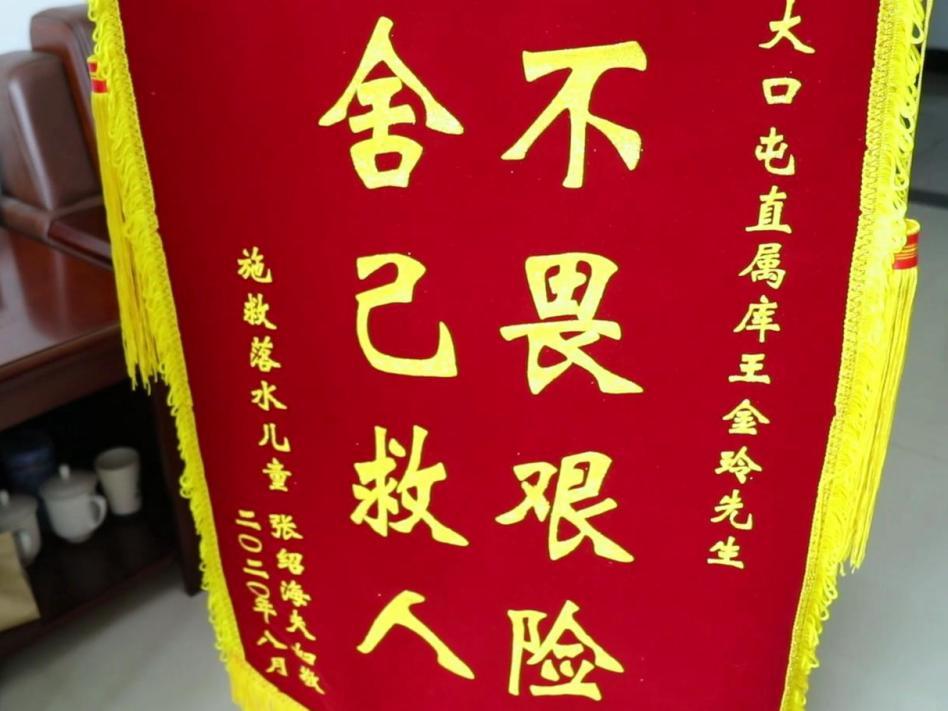 大口屯直属库王金玲先生
不畏艰险
舍己救人
施救落水儿童
张绍海夫妇敬
二〇二〇年八月